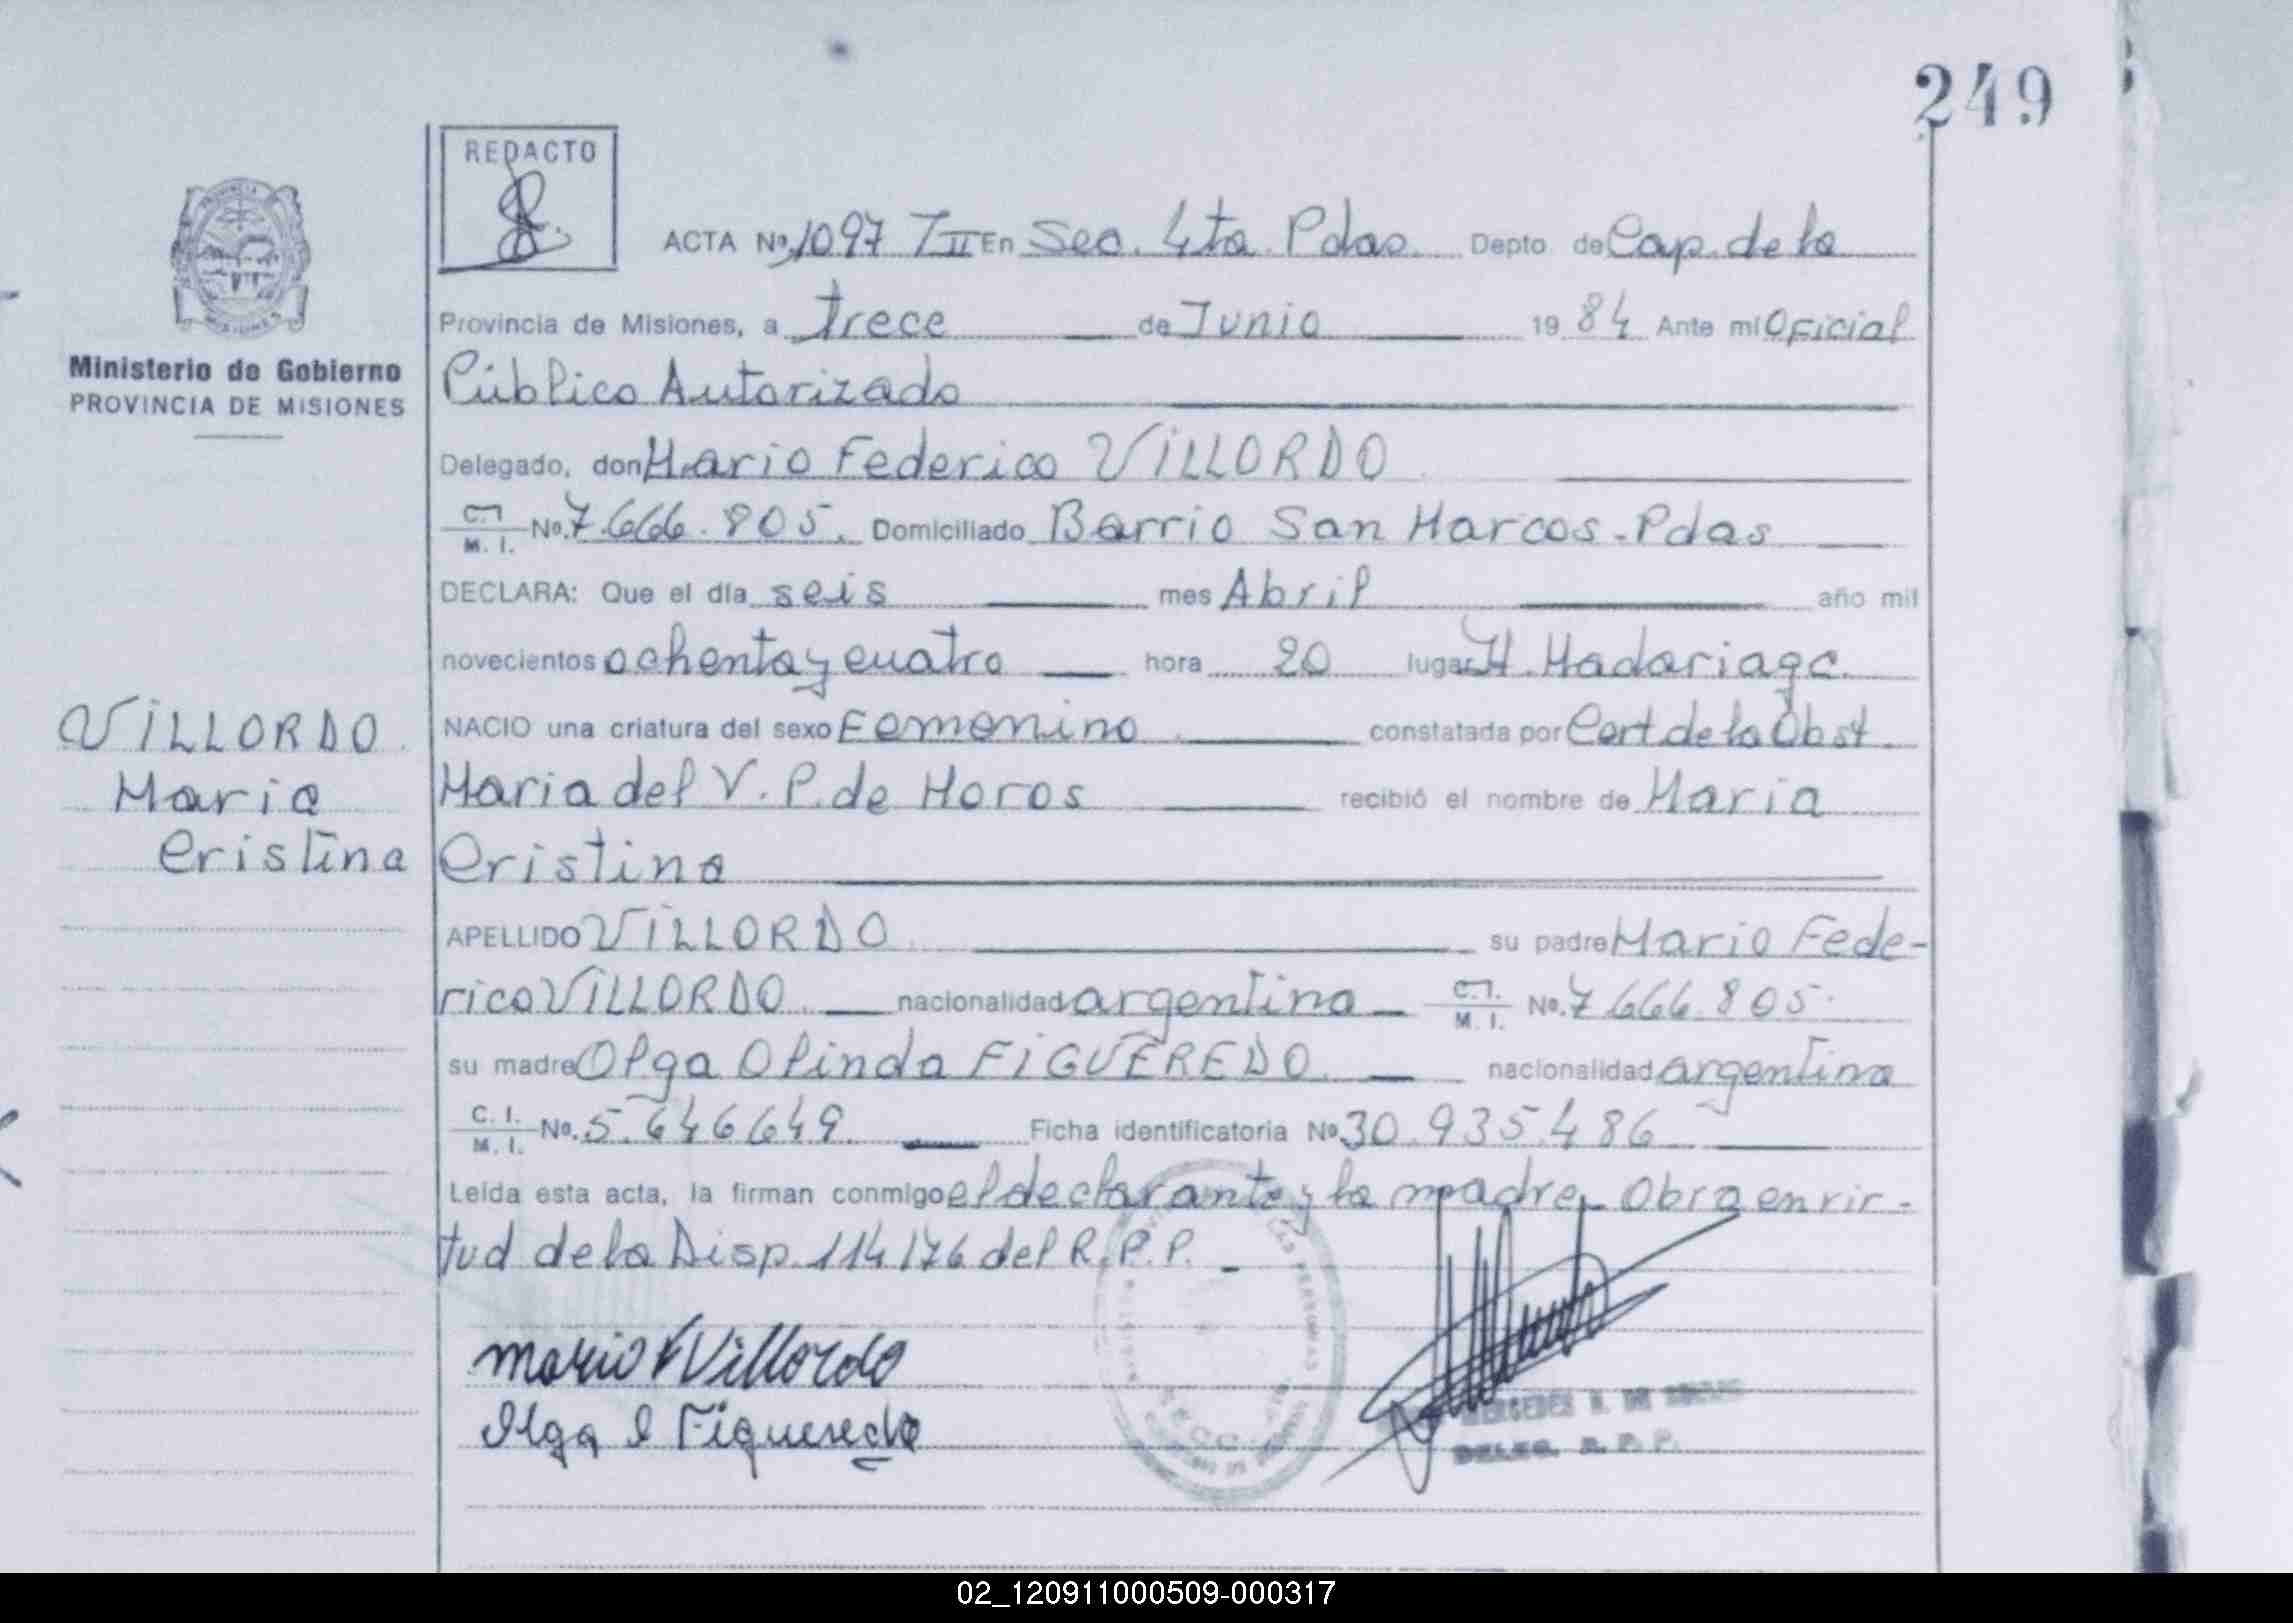 249
REDACTO
ACTA Nº 1097 TII En Sec. 4ta Pdas. Depto de Cap. de la
Provincia de Misiones, a trece de Junio 19 84 Ante mi Oficial
Ministerio de Gobierno
PROVINCIA DE MISIONES
Público Autorizado
Delegado, don Mario Federico VILLORDO
C.I. M. I. No. 7.666.805. Domiciliado Barrio San Marcos-Pdas
DECLARA: Que el día seis mes Abril año mil
novecientos ochenta y cuatro hora 20 lugar H. Madariaga
NACIO una criatura del sexo Femenino constatada por Cert de la Obst.
VILLORDO
Maria
Cristina
Maria del V. P. de Moros recibió el nombre de Maria
Cristina
APELLIDO VILLORDO su padre Mario Fede-
rico VILLORDO nacionalidad argentina C.I. M. I. No. 7.666.805.
su madre Olga Olinda FIGUEREDO nacionalidad argentina
C. I. M. I. No. 5.646649. Ficha identificatoria Nº 30.935.486
Leída esta acta, la firman conmigo el declarante y la madre. Obra en vir-
tud de la Disp. 114/76 del R.P.P.
Mario F Villordo
Olga O Figueredo
MERCEDES N. DE
DELEG. R. P. P.
02_120911000509-000317